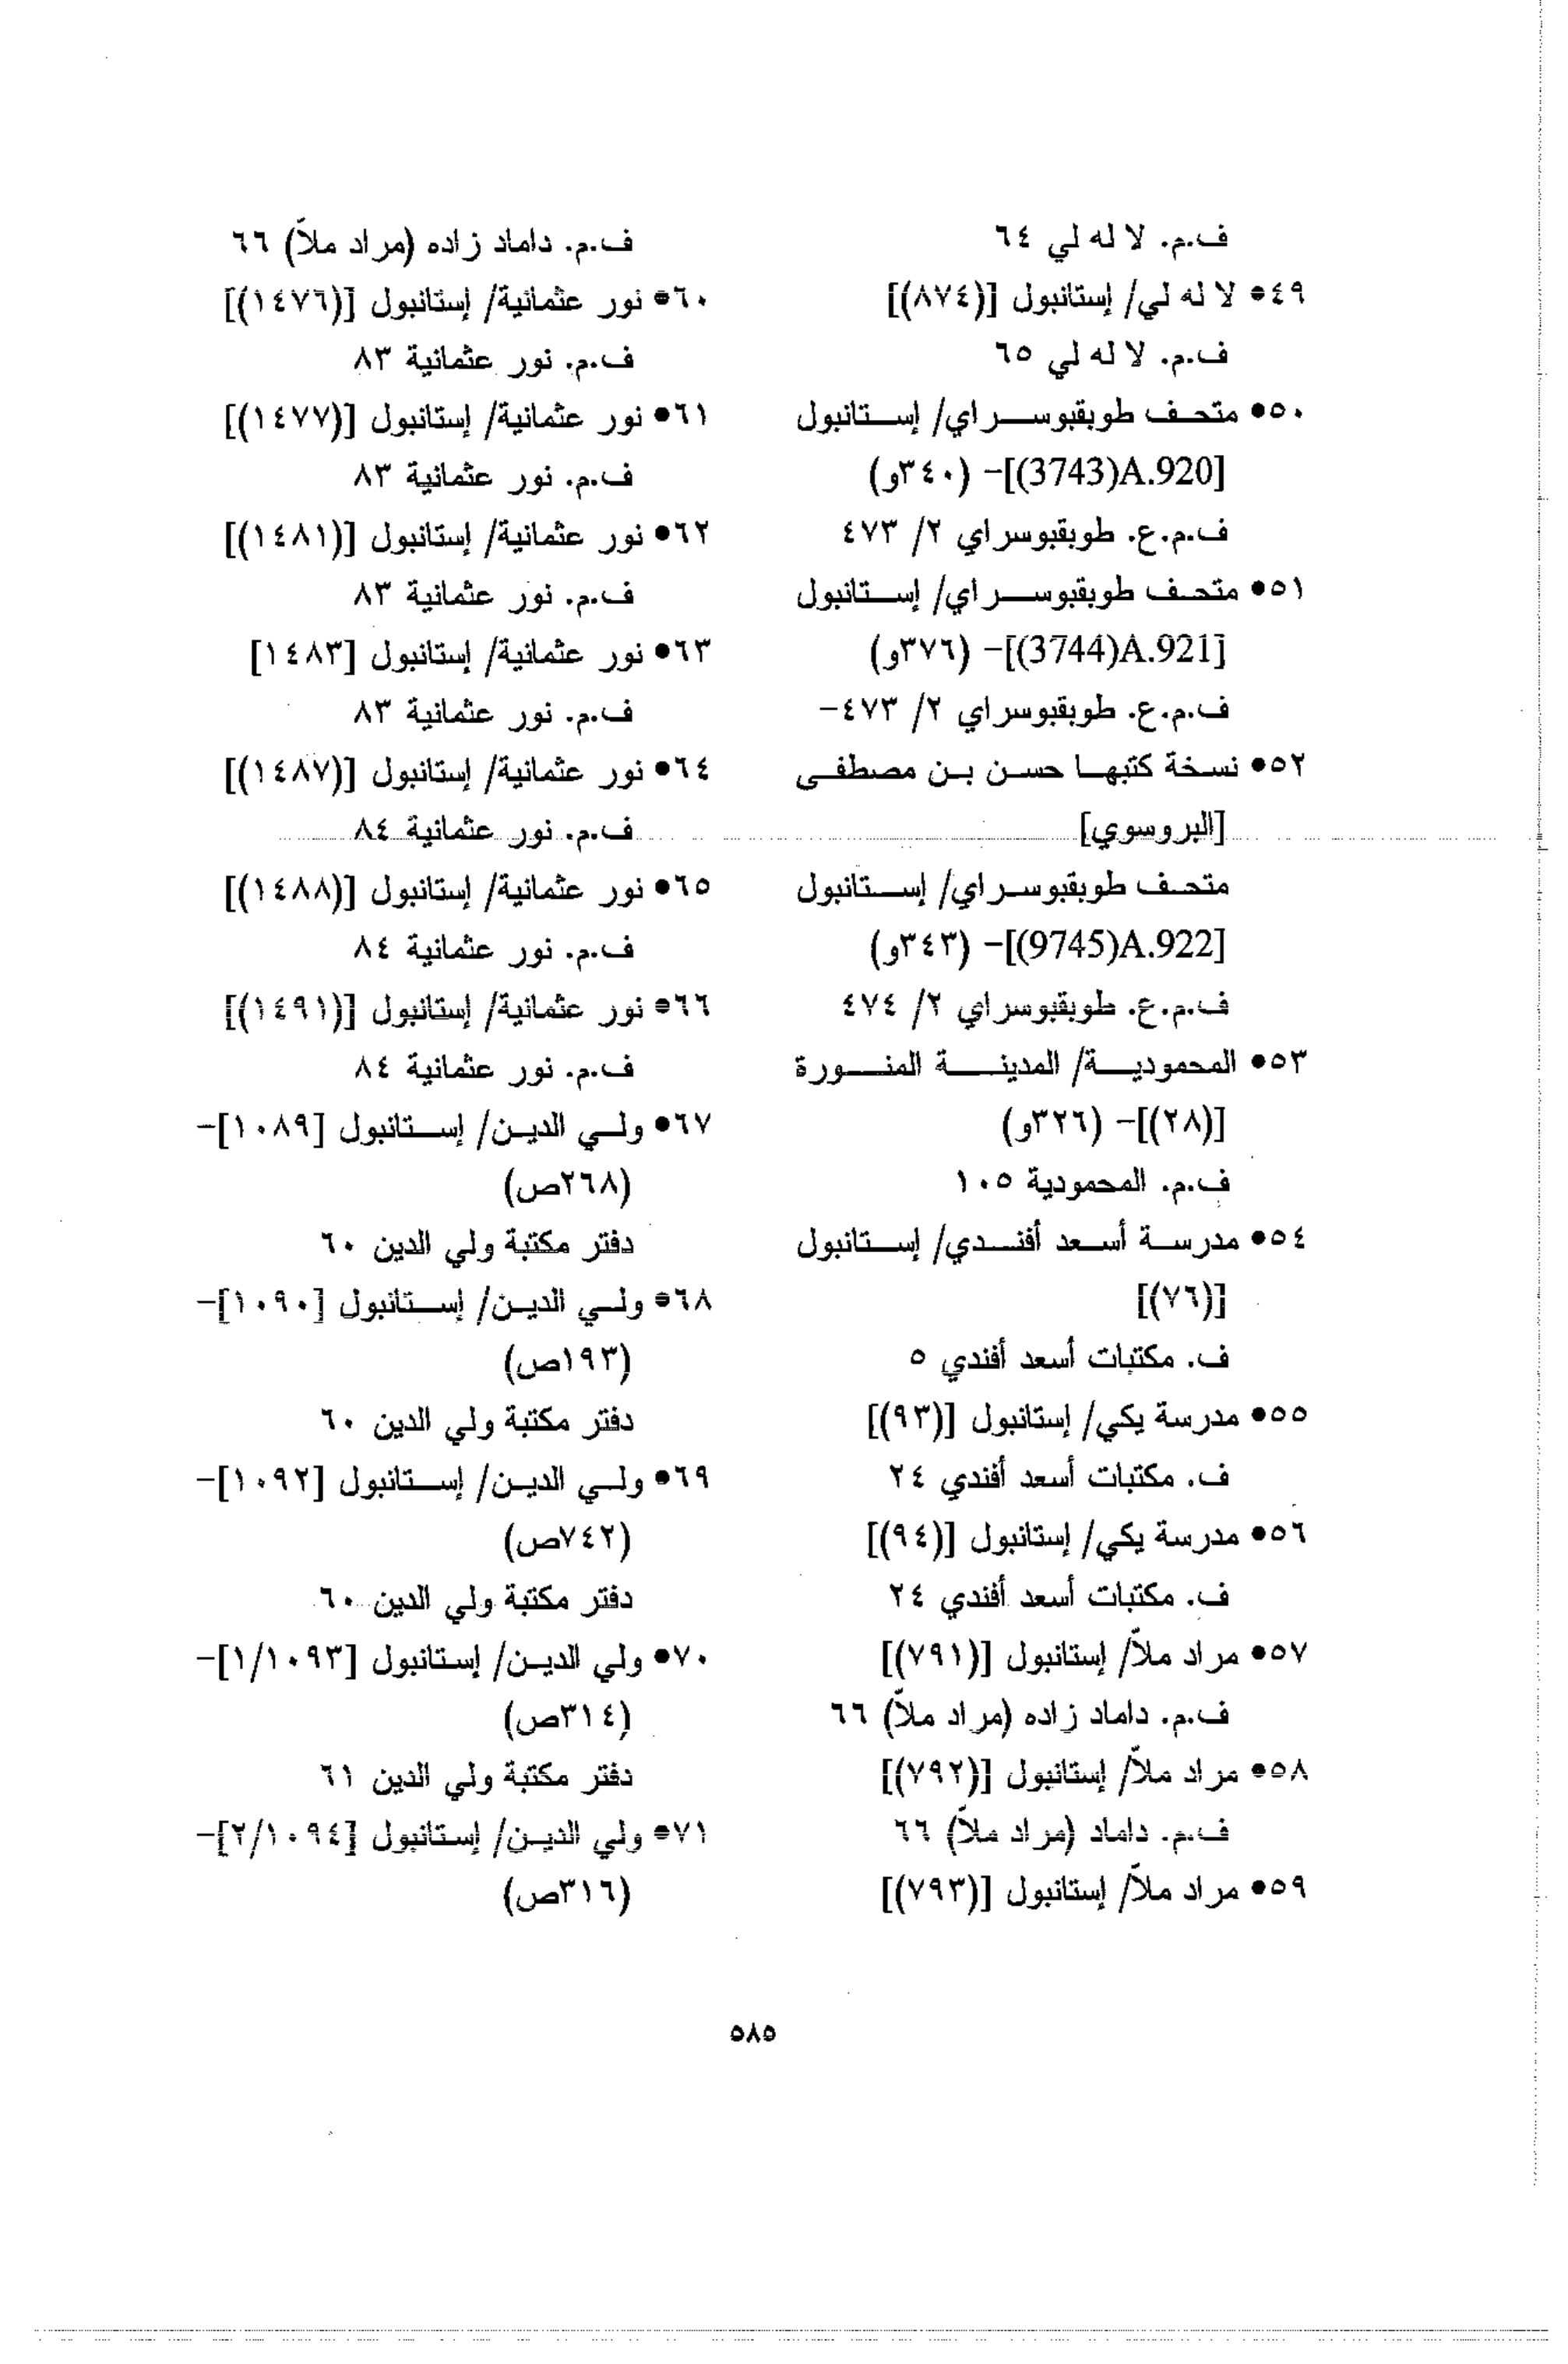 ف.م. لا له لي ٦٤
٤٩• لا له لي/ إستانبول [(٨٧٤)]
ف.م. لا له لي ٦٥
٥٠• متحف طوبقبوسراي/ إستانبول
[3743)A.920)]– (٣٤٠و)
ف.م.ع. طوبقبوسراي ٢/ ٤٧٣
٥١• متحف طوبقبوسراي/ إستانبول
[3744)A.921)]– (٣٧٦و)
ف.م.ع. طوبقبوسراي ٢/ ٤٧٣–
٥٢• نسخة كتبها حسن بن مصطفى
[البروسوي]
متحف طوبقبوسراي/ إستانبول
[9745)A.922)]– (٣٤٣و)
ف.م.ع. طوبقبوسراي ٢/ ٤٧٤
٥٣• المحمودية/ المدينة المنورة
[(٢٨)]– (٣٢٦و)
ف.م. المحمودية ١٠٥
٥٤• مدرسة أسعد أفندي/ إستانبول
[(٧٦)]
ف. مكتبات أسعد أفندي ٥
٥٥• مدرسة يكي/ إستانبول [(٩٣)]
ف. مكتبات أسعد أفندي ٢٤
٥٦• مدرسة يكي/ إستانبول [(٩٤)]
ف. مكتبات أسعد أفندي ٢٤
٥٧• مراد ملاّ/ إستانبول [(٧٩١)]
ف.م. داماد زاده (مراد ملاّ) ٦٦
٥٨• مراد ملاّ/ إستانبول [(٧٩٢)]
ف.م. داماد (مراد ملاّ) ٦٦
٥٩• مراد ملاّ/ إستانبول [(٧٩٣)]
ف.م. داماد زاده (مراد ملاّ) ٦٦
٦٠• نور عثمانية/ إستانبول [(١٤٧٦)]
ف.م. نور عثمانية ٨٣
٦١• نور عثمانية/ إستانبول [(١٤٧٧)]
ف.م. نور عثمانية ٨٣
٦٢• نور عثمانية/ إستانبول [(١٤٨١)]
ف.م. نور عثمانية ٨٣
٦٣• نور عثمانية/ إستانبول [١٤٨٣]
ف.م. نور عثمانية ٨٣
٦٤• نور عثمانية/ إستانبول [(١٤٨٧)]
ف.م. نور عثمانية ٨٤
٦٥• نور عثمانية/ إستانبول [(١٤٨٨)]
ف.م. نور عثمانية ٨٤
٦٦• نور عثمانية/ إستانبول [(١٤٩١)]
ف.م. نور عثمانية ٨٤
٦٧• ولي الدين/ إستانبول [١٠٨٩]–
(٢٦٨ص)
دفتر مكتبة ولي الدين ٦٠
٦٨• ولي الدين/ إستانبول [١٠٩٠]–
(١٩٣ص)
دفتر مكتبة ولي الدين ٦٠
٦٩• ولي الدين/ إستانبول [١٠٩٢]–
(٧٤٢ص)
دفتر مكتبة ولي الدين ٦٠
٧٠• ولي الدين/ إستانبول [١/١٠٩٣]–
(٣١٤ص)
دفتر مكتبة ولي الدين ٦١
٧١• ولي الدين/ إستانبول [٢/١٠٩٤]–
(٣١٦ص)
٥٨٥